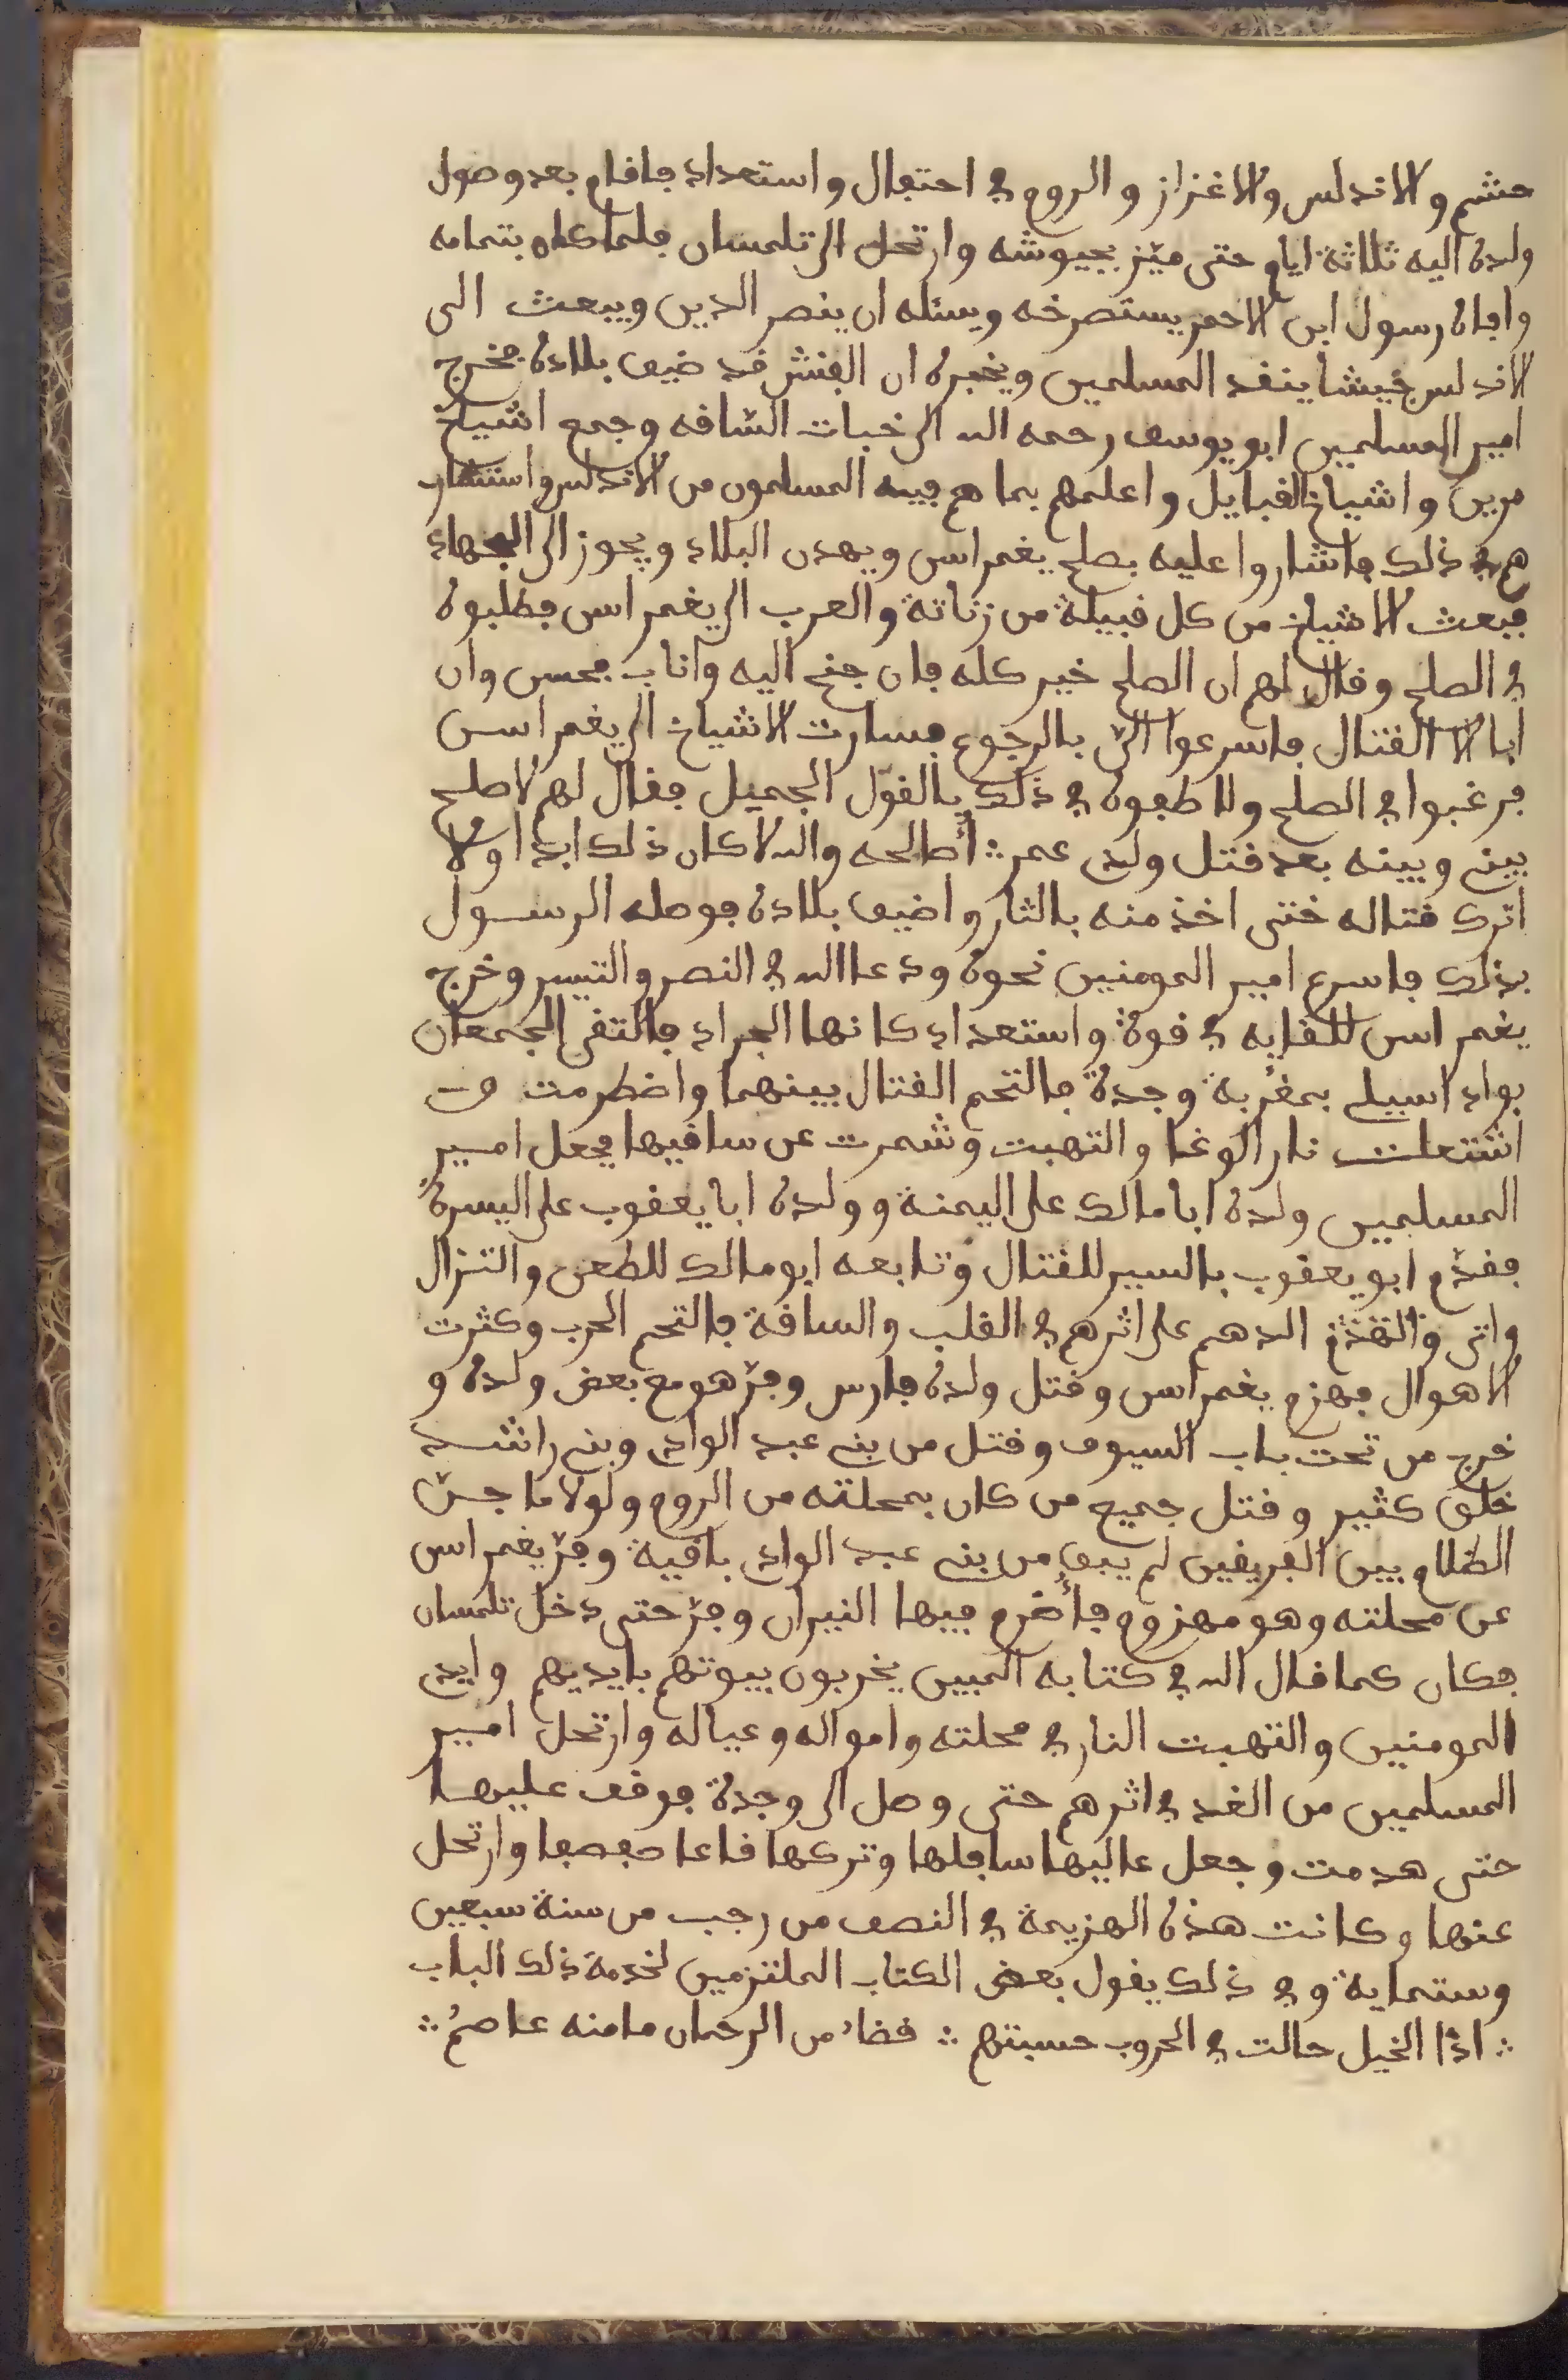 حشم والاندلس والاغزاز والروم في احتفال واستعداد فاقام بعد وصول
ولده اليه ثلاثة ايام حتى ميّز بجيوشه وارتحل الى تلمسان فلما كان بتمامه
وافاه رسول ابن الاحمر يستصرخه ويسئله ان ينصر الدين ويبعث الى
الاندلس جيشا ينفد المسلمين ويخبره ان الفنش قد ضيق بلاده فخرج
امير المسلمين ابو يوسف رحمه الله الى خبات الساقه وجمع اشياخ
مرين واشياخ القبايل واعلمهم بما هم فيه المسلمون من الاندلس واستشار
هم في ذلك فاشاروا عليه بصلح يغمراسن ويهدن البلاد ويجوز الى الجهاد
فبعث الاشياخ من كل قبيلة من زناتة والعرب الى يغمراسن فطلبوه
في الصلح وقال لهم ان الصلح خير كله فان جنح اليه واناب فحسن وان
ابا الا القتال فاسرعوا اليّ بالرجوع فسارت الاشياخ الى يغمراسن
فرغبوا في الصلح ولاطفوه في ذلك بالقول الجميل فقال لهم لا صلح
بيني وبينه بعد قتل ولدي عمر ∴ أصالحه والله لا كان ذلك ابدا ولا
اترك قتاله حتى اخذ منه بالثار واضيق بلاده فوصله الرسول
بذلك فاسرع امير المومنين نحوه ودعا الله في النصر والتيسر وخرج
يغمراسن للقايه في قوة واستعداد كانها الجراد فالتقى الجمعان
بواد اسيلي بمقربة وجدة فالتحم القتال بينهما واضطرمت و
اشتعلت نار الوغا والتهبت وشمرت عن ساقيها فجعل امير
المسلمين ولده ابا مالك على اليمنة وولده ابا يعقوب على اليسرة
فقدّم ابو يعقوب بالسير للقتال وتابعه ابو مالك للطعن والنزال
واتى والتقدّم الدهم على اثرهم في القلب والساقة فالتحم الحرب وكثرت
الاهوال فهزم يغمراسن وقتل ولده فارس وفرّ هو مع بعض ولده و
خرج من تحت باب السيوف وقتل من بني عبد الوادي وبني راشد
خلق كثير وقتل جميع من كان بمحلته من الروم ولولا ما جنّ
الظلام بين الفريقين لم يبق من بني عبد الواد باقية وفرّ يغمراسن
عن محلته وهو مهزوم فأضرم فيها النيران وفرّ حتى دخل تلمسان
فكان كما قال الله في كتابه المبين يخربون بيوتهم بايديهم وايدي
المومنين والتهبت النار في محلته وامواله وعياله وارتحل امير
المسلمين من الغد في اثرهم حتى وصل الى وجدة فوقف عليها
حتى هدمت وجعل عاليها سافلها وتركها قاعا صفصفا وارتحل
عنها وكانت هذه الهزيمة في النصف من رجب من سنة سبعين
وستماية وفي ذلك يقول بعض الكتاب الملتزمين لخدمة ذلك الباب
∴ اذا الخيل جالت في الحروب حسبتهم ∴ قضاءٌ من الرحمان ما منه عاصمُ ∴